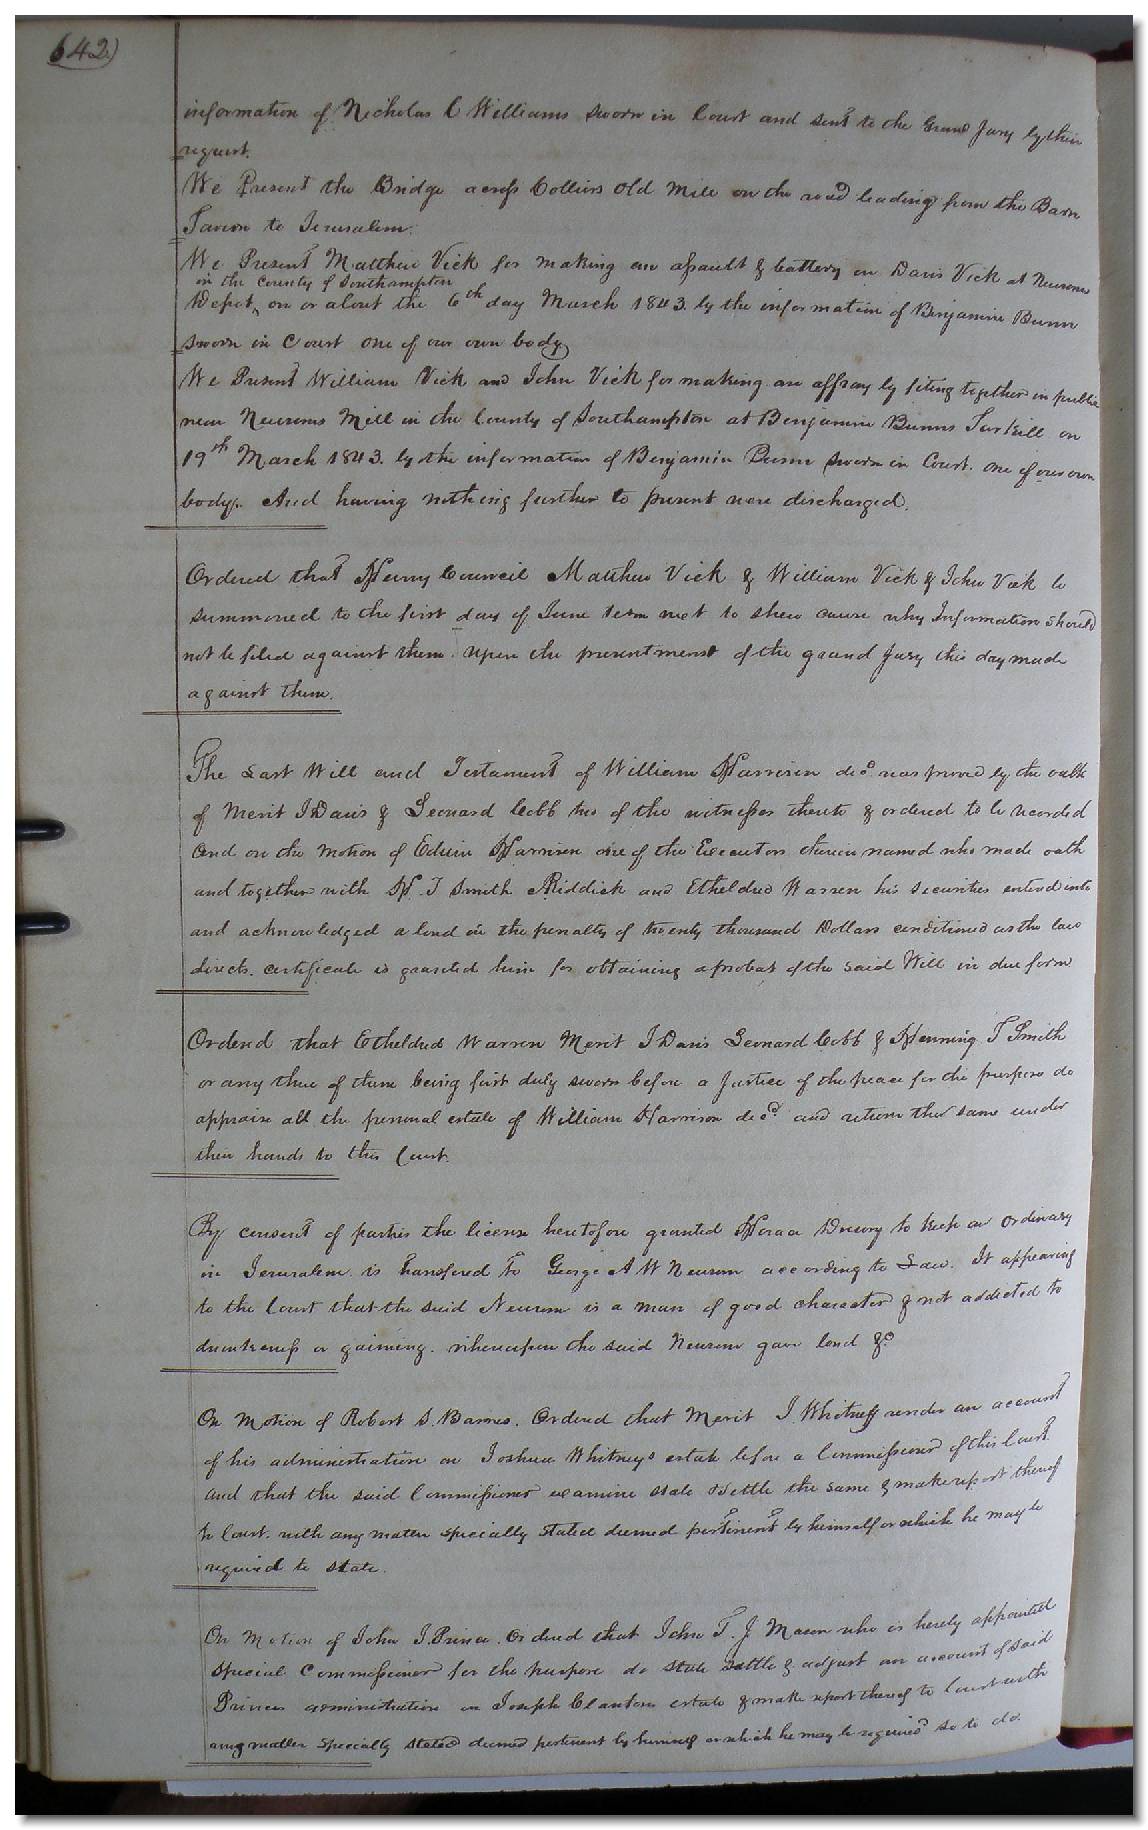 642)
information of Nicholas C Williams sworn in Court and sent to the Grand Jury by their
request.
We Present the Bridge across Colliers Old Mill on the road leading from the Barn
Tavern to Jerusalem.
We Present Matthew Vick for making an assault & battery on Davis Vick at Newsoms
in the County of Southampton
Depot, on or about the 6th day March 1843. by the information of Benjamin Bunn
sworn in Court one of our own body
We Present William Vick and John Vick for making an affray by fiting together in public
near Newsoms Mill in the County of Southampton at Benjamin Bunns on
19th March 1843. by the information of Benjamin Bunn sworn in Court. one of our own
body. And having nothing further to present were discharged.
Ordered that Henry Council Matthew Vick & William Vick & John Vick be
summoned to the first day of June term next to shew cause why Information should
not be filed against them upon the presentment of the grand Jury this day made
against them.
The Last Will and Testament of William Harrison decd was proved by the oath
of Merit J Davis & Leonard Cobb two of the witnesses thereto & ordered to be recorded
And on the motion of Edwin Harrison one of the Executors therein named who made oath
and together with H. T Smith Riddick and Etheldred Warren his securities entered into
and acknowledged a bond in the penalty of twenty thousand Dollars conditioned as the law
directs. certificate is granted him for obtaining a probat of the said Will in due form
Ordered that Etheldred Warren Merit J Davis Leonard Cobb & Henning T Smith
or any three of them being first duly sworn before a Justice of the peace for the purpose do
appraise all the personal estate of William Harrison decd and return the same under
their hands to this Court.
By consent of parties the license heretofore granted Horace Drewry to keep an ordinary
in Jerusalem is transfered to George A W Newsom according to Law. It appearing
to the Court that the said Newsom is a man of good character & not addicted to
drunkeness or gaiming. whereupon the said Newsom gave bond &c
On Motion of Robert S. Barnes. Ordered that Merit J. Whitney render an account
of his administration on Joshua Whitneys estate before a Commissioner of this Court
and that the said Commissioner examine state settle the same & make report thereof
to Court. with any matter specially stated deemed pertinent by himself or which he may be
required to state.
On Motion of John J. Prince. Ordered that John T. J. Mason who is hereby appointed
special Commissioner for the purpose do state settle & adjust an account of said
Princes administration on Joseph Clantons estate & make report thereof to Court with
any matter specially stated deemed pertinent by himself or which he may be required so to do.